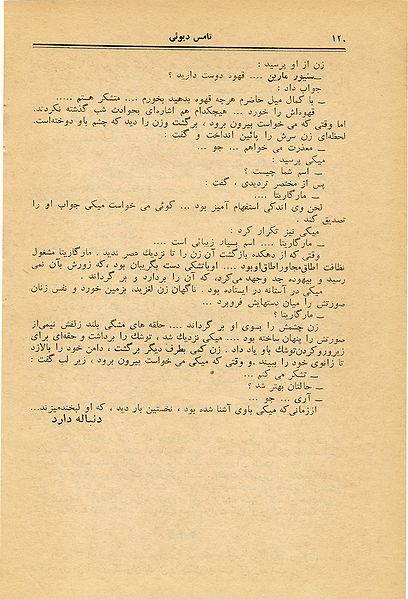 ۱۲۰
تامس دیوئی
زن از او پرسید :
ــ سنیور مارین .... قهوه دوست دارید ؟
جواب داد :
ــ با کمال میل حاضرم هرچه قهوه بدهید بخورم .... متشکر هستم .....
قهوه‌اش را خورد ... هیچکدام هم اشاره‌ای بحوادث شب گذشته نکردند.
اما وقتی که می خواست بیرون برود ، برگشت وزن را دید که چشم باو دوخته‌است.
لحظه‌ای زن سرش را پائین انداخت و گفت :
ــ معذرت می خواهم ... جو ...
میکی پرسید :
ــ اسم شما چیست ؟
پس از مختصر تردیدی ، گفت :
ــ مارگاریتا ....
لحن وی اندکی استفهام آمیز بود ... گوئی می خواست میکی جواب او را
تصدیق کند .
میکی نیز تکرار کرد :
ــ مارگاریتا .... اسم بسیار زیبائی است ....
وقتی که از دهکده بازگشت آن زن را تا نزدیك عصر ندید . مارگاریتا مشغول
نظافت اطاق‌مجاوراطاق‌اوبود .... اوباتشکی دست بگریبان بود ،که زورش بآن نمی
رسید و بیهوده جد وجهد می‌کرد، که آن را بردارد و بر گرداند .
میکی در آستانه در ایستاده بود . ناگهان زن لغزید، بزمین خورد و نفس زنان
صورتش را میان دستهایش فروبرد ...
ــ مارگاریتا ؟
زن چشمش را بسوی او بر گرداند .... حلقه های مشگی بلند زلفش نیمی‌از
صورتش را پنهان ساخته بود .... میکی نزدیك شد ، توشك را برداشت و حقه‌ای برای
زیروروکردن‌توشك باو یاد داد . زن کمی بطرف دیگر برگشت ، دامن خود را بالازد
تا زانوی خود را ببیند .و وقتی که میکی می خواست بیرون برود ، زیر لب گفت :
ــ تشکر می کنم ...
ــ حالتان بهتر شد ؟
ــ آری ... جو ...
اززمانی‌که میکی باوی آشنا شده بود ، نخستین بار دید ، که او لبخندمیزند...
دنباله دارد